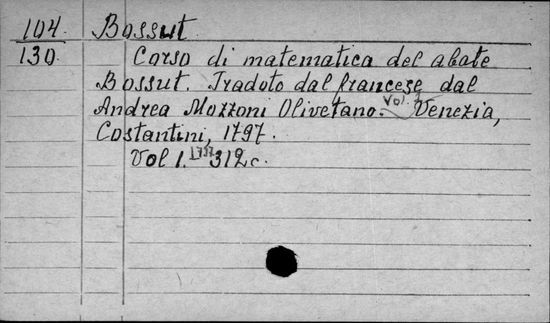 104 Bossut
130 Corso di matematica del abate
Bossut. Tradoto dal francese dal
Andrea Mozzoni Olivetano. Vol. Venezia,
Costantini, 1797.
Vol 1. 1797 312 c.